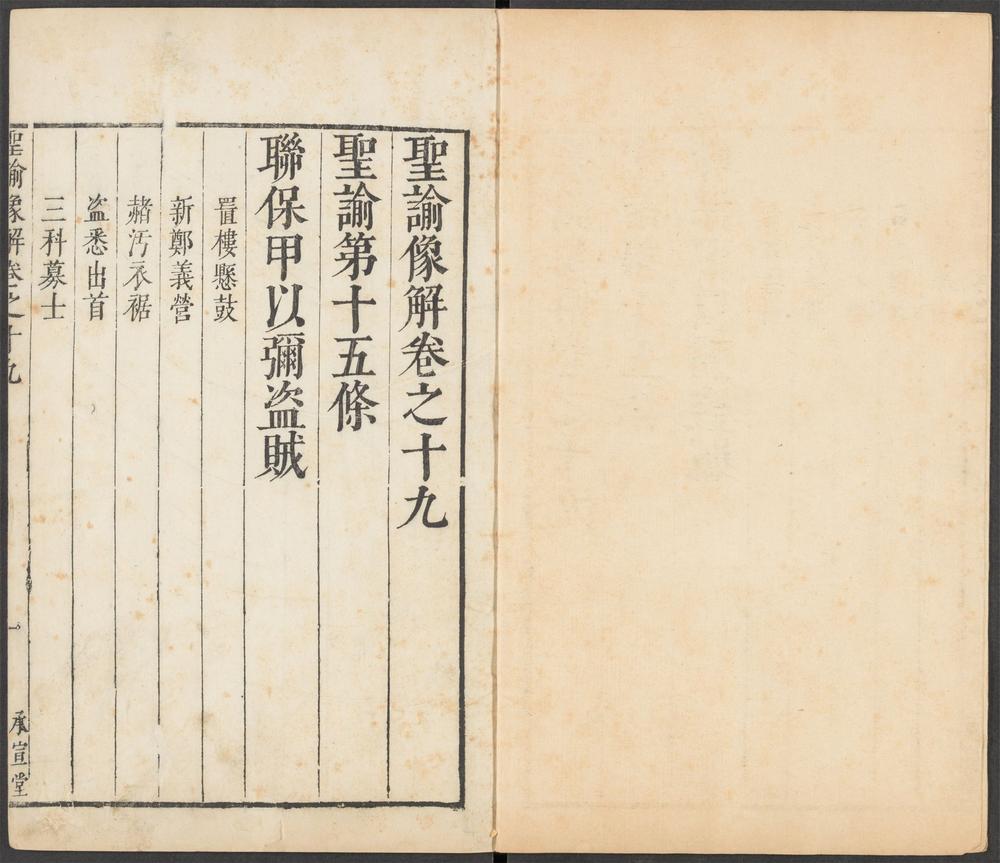 聖諭像解卷之十九
聖諭第十五條
聯保甲以彌盜賊
置樓懸鼓
新鄭義營
赭汚衣裾
盜悉出首
三科募士
聖諭像解卷之十九
一
承宣堂